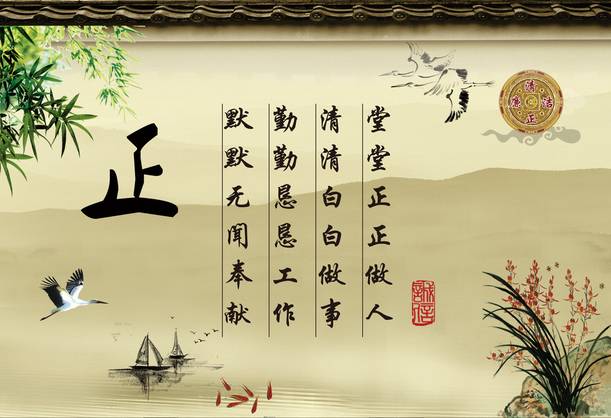 堂堂正正做人
清清白白做事
勤勤恳恳工作
默默无闻奉献
正
清正廉洁
誠信